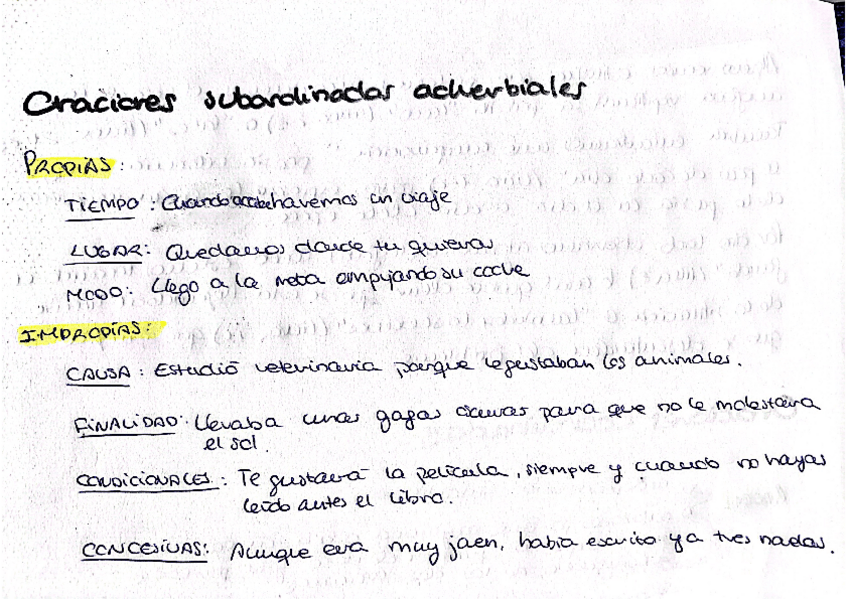 Oraciones subordinadas adverbiales
PROPIAS:
TIEMPO: Cuando haremos un viaje
LUGAR: Quedamos donde tu quieras
MODO: Llego a la meta empujando su coche
IMPROPIAS:
CAUSA: Estudió veterinaria porque le gustaban los animales.
FINALIDAD: Llevaba unas gafas oscuras para que no le molestara
el sol.
CONDICIONALES: Te gustará la película, siempre y cuando no hayas
leído antes el libro.
CONCESIVAS: Aunque era muy joven, había escrito ya tres